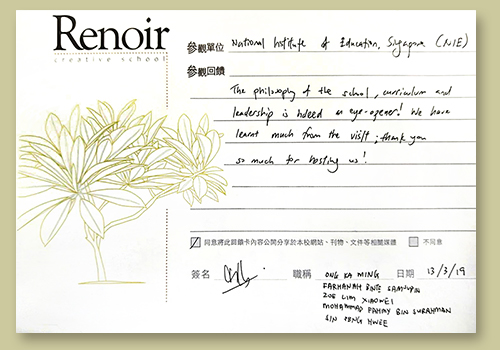 Renoir
creative school
參觀單位 National Institute of Education, Singapore (NIE)
參觀回饋
The philosophy of the school, curriculum and
leadership is indeed an eye-opener! We have
learnt much from the visit; thank you
so much for hosting us!
同意將此回饋卡內容公開分享於本校網站、刊物、文件等相關媒體 不同意
簽名 職稱 ONG KA MING 日期 13/3/19
FARHANAH BINTE
ZOE LIM XIAOWEI
MOHAMMAD BIN SURAHMAN
LIN HWEE